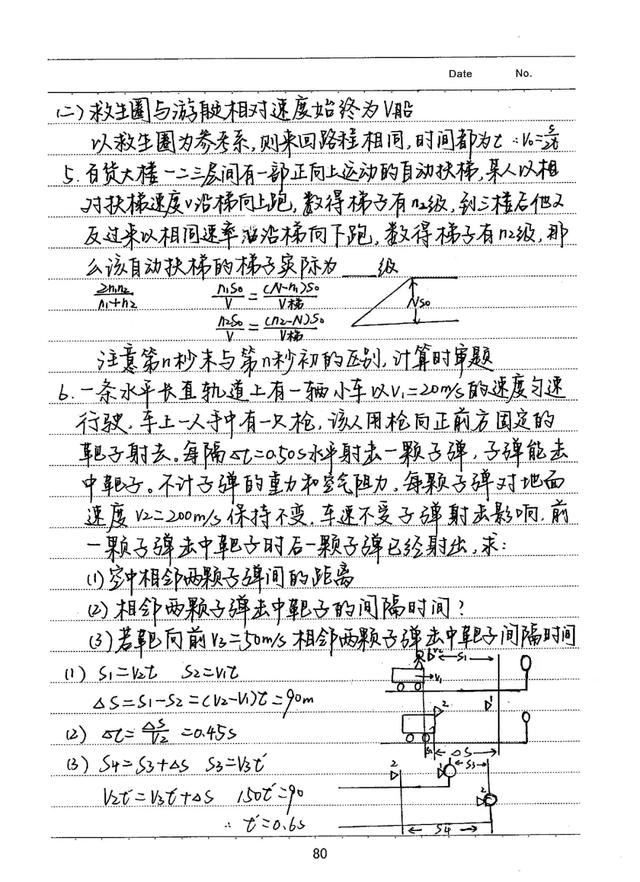 Date No.
(二)救生圈与游艇相对速度始终为V船
以救生圈为参考系,则来回路程相同,时间都为t ∴V₀=s/2t
5.百货大楼一二三层间有一部正向上运动的自动扶梯,某人以相
对扶梯速度v沿梯向上跑,数得梯子有n₁级,到三楼后他又
反过来以相同速率沿梯向下跑,数得梯子有n2级,那
么该自动扶梯的梯子实际为____级
2n₁n₂/n₁+n₂ n₁S₀/V=(N-n₁)S₀/V梯 NS₀
n₂S₀/V=(n₂-N)S₀/V梯
注意第n秒末与第n秒初的区别,计算时审题
6.一条水平长直轨道上有一辆小车以V₁=20m/s的速度匀速
行驶,车上一人手中有一只枪,该人用枪向正前方固定的
靶子射去。每隔Δt=0.50s水平射去一颗子弹,子弹能击
中靶子。不计子弹的重力和空气阻力,每颗子弹对地面
速度V2=200m/s保持不变,车速不受子弹射击影响,前
一颗子弹击中靶子时后一颗子弹已经射出,求:
(1)空中相邻两颗子弹间的距离
(2)相邻两颗子弹击中靶子的间隔时间?
(3)若靶向前V₃=50m/s 相邻两颗子弹击中靶子间隔时间
(1) S₁=V₂t S₂=V₁t
ΔS=S₁-S₂=(V₂-V₁)t=90m
(2) Δt=ΔS/V₂=0.45s
(3) S4=S3+ΔS S3=V3t'
V₂t'=V₃t'+ΔS 150t'=90
∴ t'=0.6s
V₂ S₁
V₁
2 1
ΔS
2 1 S₃
2
S4
80